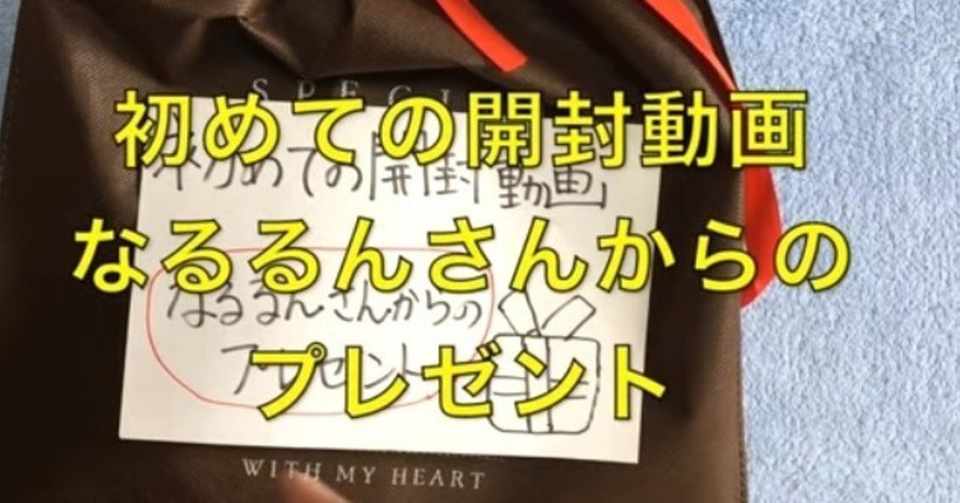 SPECI
初めての開封動画
「初めての開封動画」
なるるんさんからの
なるるんさんからの
プレゼント
プレゼント
WITH MY HEART